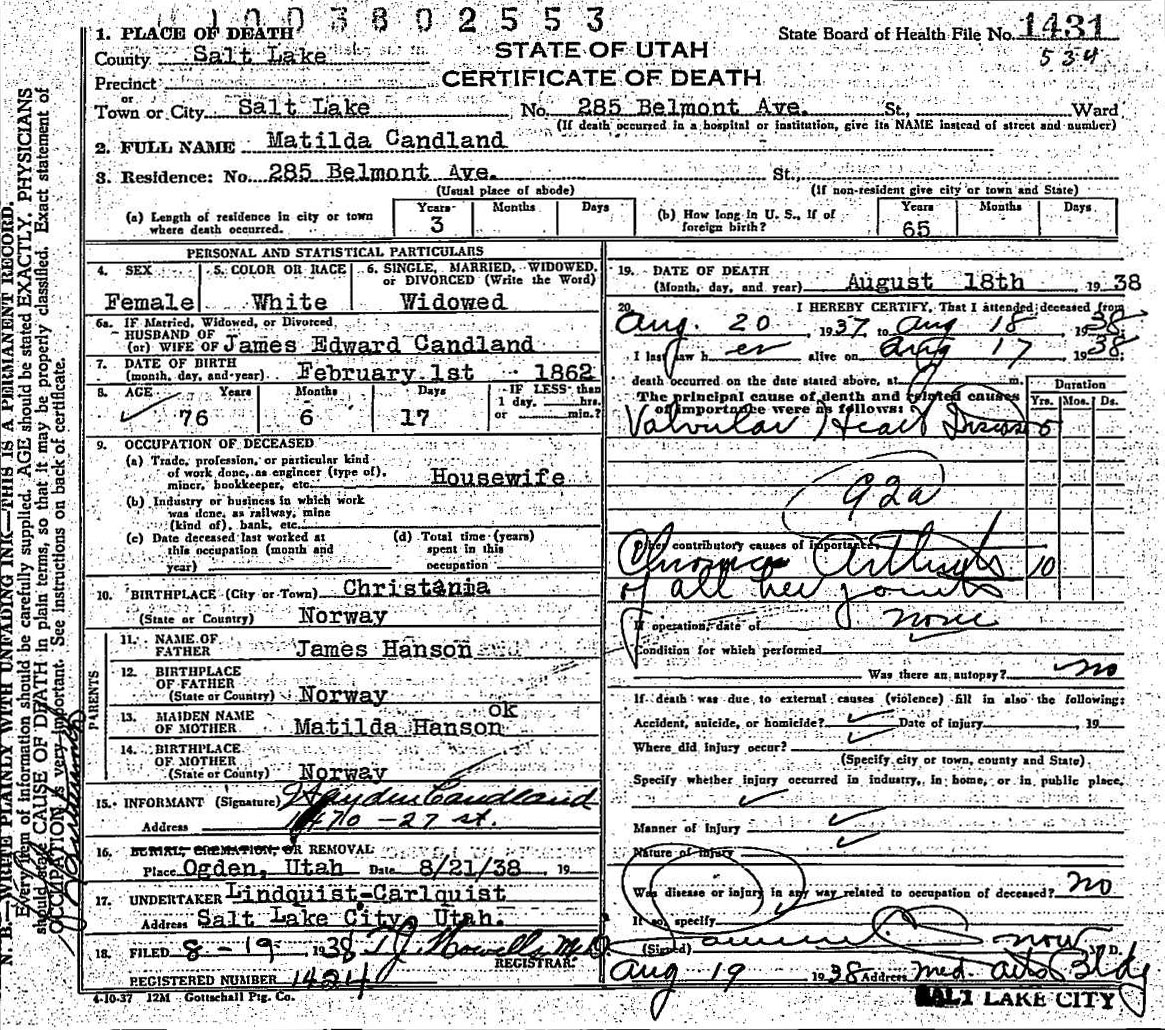 1003802553
1. PLACE OF DEATH
State Board of Health File No. 1431
534
County Salt Lake
STATE OF UTAH
CERTIFICATE OF DEATH
Precinct
or
Town or City Salt Lake No. 285 Belmont Ave. St., Ward
(If death occurred in a hospital or institution, give its NAME instead of street and number)
2. FULL NAME Matilda Candland
3. Residence: No. 285 Belmont Ave. St.
(Usual place of abode) (If non-resident give city or town and State)
(a) Length of residence in city or town where death occurred. Years 3 Months Days
(b) How long in U. S., if of foreign birth? Years 65 Months Days
PERSONAL AND STATISTICAL PARTICULARS
4. SEX 5. COLOR OR RACE 6. SINGLE, MARRIED, WIDOWED, or DIVORCED (Write the Word)
Female White Widowed
6a. IF Married, Widowed, or Divorced
HUSBAND OF
(or) WIFE OF James Edward Candland
7. DATE OF BIRTH
(month, day, and year) February 1st 1862
8. AGE Years Months Days IF LESS than
1 day, hrs.
or min.?
76 6 17
9. OCCUPATION OF DECEASED
(a) Trade, profession, or particular kind
of work done, as engineer (type of),
miner, bookkeeper, etc. Housewife
(b) Industry or business in which work
was done, as railway, mine
(kind of), bank, etc.
(c) Date deceased last worked at
this occupation (month and
year)
(d) Total time (years)
spent in this
occupation
10. BIRTHPLACE (City or Town) Christania
(State or Country) Norway
PARENTS
11. NAME OF
FATHER James Hanson
12. BIRTHPLACE
OF FATHER
(State or Country) Norway
ok
13. MAIDEN NAME
OF MOTHER Matilda Hanson
14. BIRTHPLACE
OF MOTHER
(State or County) Norway
15. INFORMANT (Signature) Hayden Candland
Address 1470 - 27 st.
16. BURIAL, CREMATION, OR REMOVAL
Place Ogden, Utah Date 8/21/38 19
17. UNDERTAKER Lindquist-Carlquist
Address Salt Lake City, Utah.
18. FILED 8-19 1938 T.J. Howells M.D.
REGISTRAR.
REGISTERED NUMBER 1424
4-10-37 12M Gottschall Ptg. Co.
19. DATE OF DEATH
(Month, day, and year) August 18th 1938
20. I HEREBY CERTIFY, That I attended deceased from
Aug. 20 1937 to Aug 18 1938
I last saw her alive on Aug 17 1938
death occurred on the date stated above, at m.
Duration
Yrs. Mos. Ds.
The principal cause of death and related causes
of importance were as follows:
Valvular Heart Disease 5
92a
Other contributory causes of importance:
Chronic Arthritis 10
of all her joints
If operation, date of none
Condition for which performed
Was there an autopsy? no
If death was due to external causes (violence) fill in also the following:
Accident, suicide, or homicide? Date of injury 19
Where did injury occur?
(Specify city or town, county and State).
Specify whether injury occurred in industry, in home, or in public place.
Manner of Injury
Nature of Injury
Was disease or injury in any way related to occupation of deceased? no
If so, specify
(Signed) Snow M. D.
Aug 19 1938 Address Med. Arts Bldg
SALT LAKE CITY
N. B.—WRITE PLAINLY WITH UNFADING INK—THIS IS A PERMANENT RECORD.
Every item of information should be carefully supplied. AGE should be stated EXACTLY. PHYSICIANS
should state CAUSE OF DEATH in plain terms, so that it may be properly classified. Exact statement of
OCCUPATION is very important. See instructions on back of certificate.